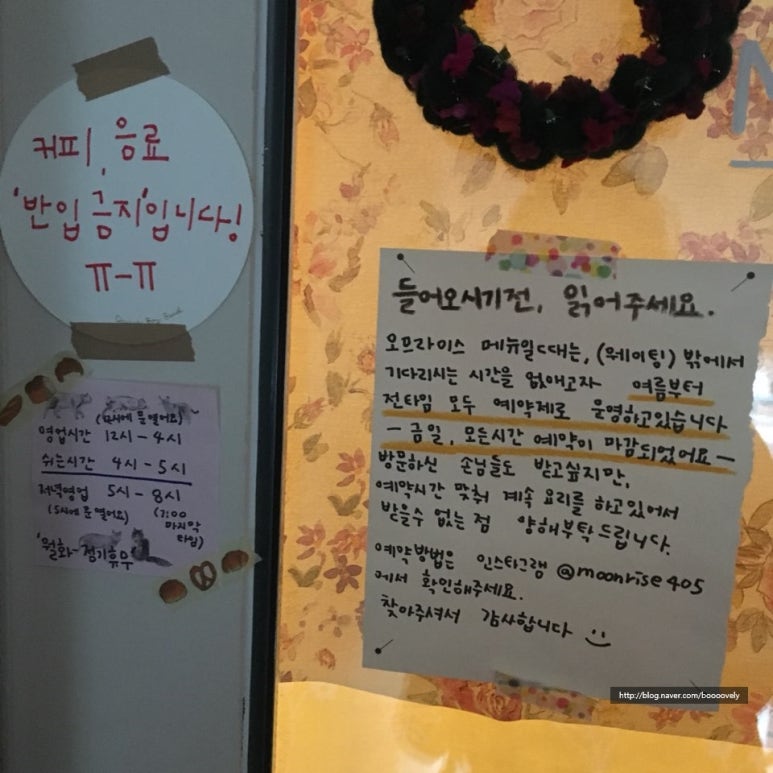 커피, 음료
'반입 금지'입니다!
ㅠ-ㅠ
(12시에 문 열어요)
영업시간 12시 - 4시
쉬는시간 4시 - 5시
저녁영업 5시 - 8시
(5시에 문 열어요) (7:00
마지막
타임)
'월화-정기휴무
들어오시기전, 읽어주세요.
오므라이스 메뉴일때는, (웨이팅) 밖에서
기다리시는 시간을 없애고자 여름부터
전타임 모두 예약제로 운영하고있습니다
- 금일, 모든시간 예약이 마감되었어요 -
방문하신 손님들도 받고싶지만,
예약시간 맞춰 계속 요리를 하고있어서
받을수 없는 점 양해부탁드립니다.
예약방법은 인스타그램 @moonrise405
에서 확인해주세요.
찾아주셔서 감사합니다
http://blog.naver.com/boooovely